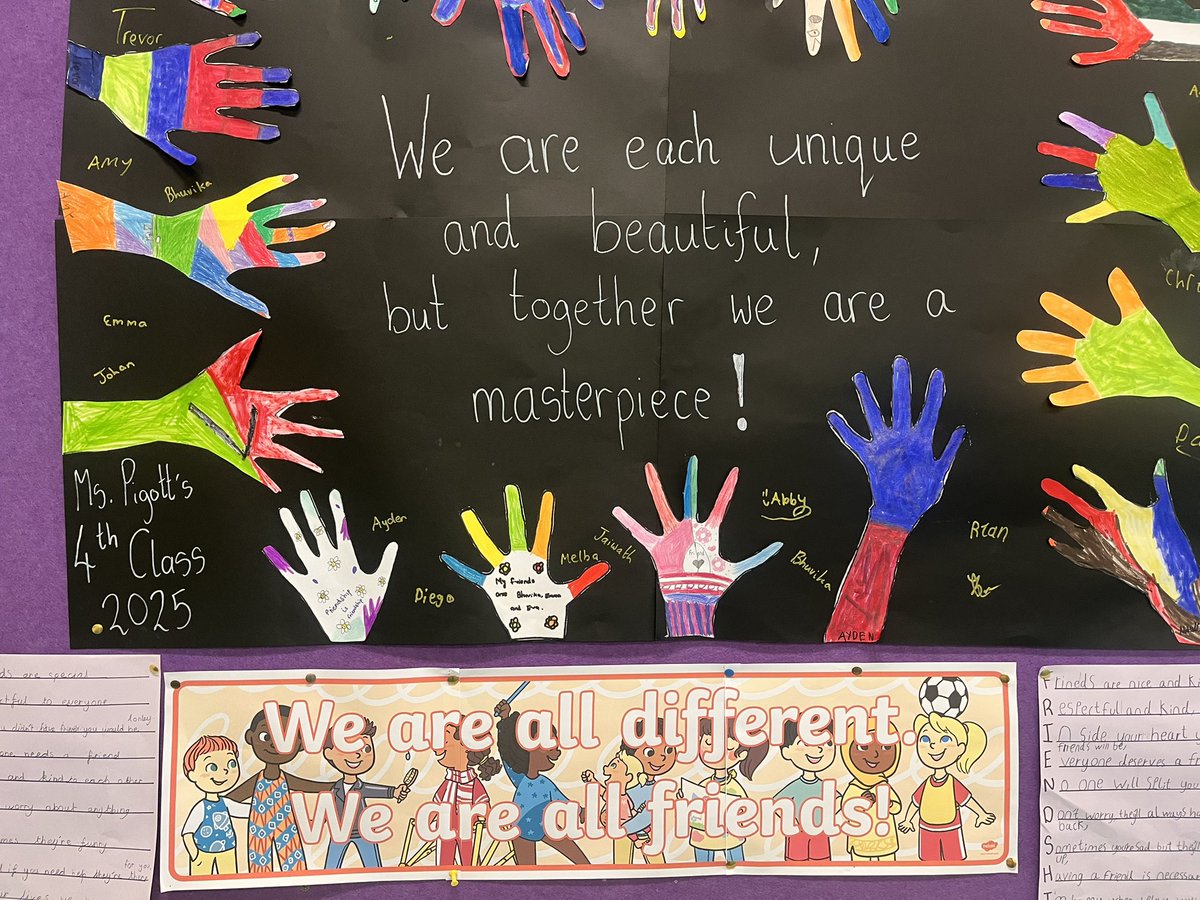 Trevor
Amy
Bhuvika
Emma
Johan
We are each unique
and beautiful,
but together we are a
masterpiece!
Ms. Pigott's
4th Class
2025
Ayden
Diego
My friends
are Bhuvika, Emma
and Eva.
Friendship
is
Melba
Jaiwath
Abby
Bhuvika
AYDEN
Rian
We are all different.
We are all friends!
ds are special
ctful to everyone
lonley
didn't have
you would be
one needs
friend
and kind to each other
worry about anything
mes they're funny
for you
if you need help they're there
Frineds are nice and ki
Respertful and kind.
In side your heart
friends will be.
Everyone deserves a f
No one will split you
Dont worry they'll always
back,
Sometimes you're sad but the
up,
Having a friend is necessa